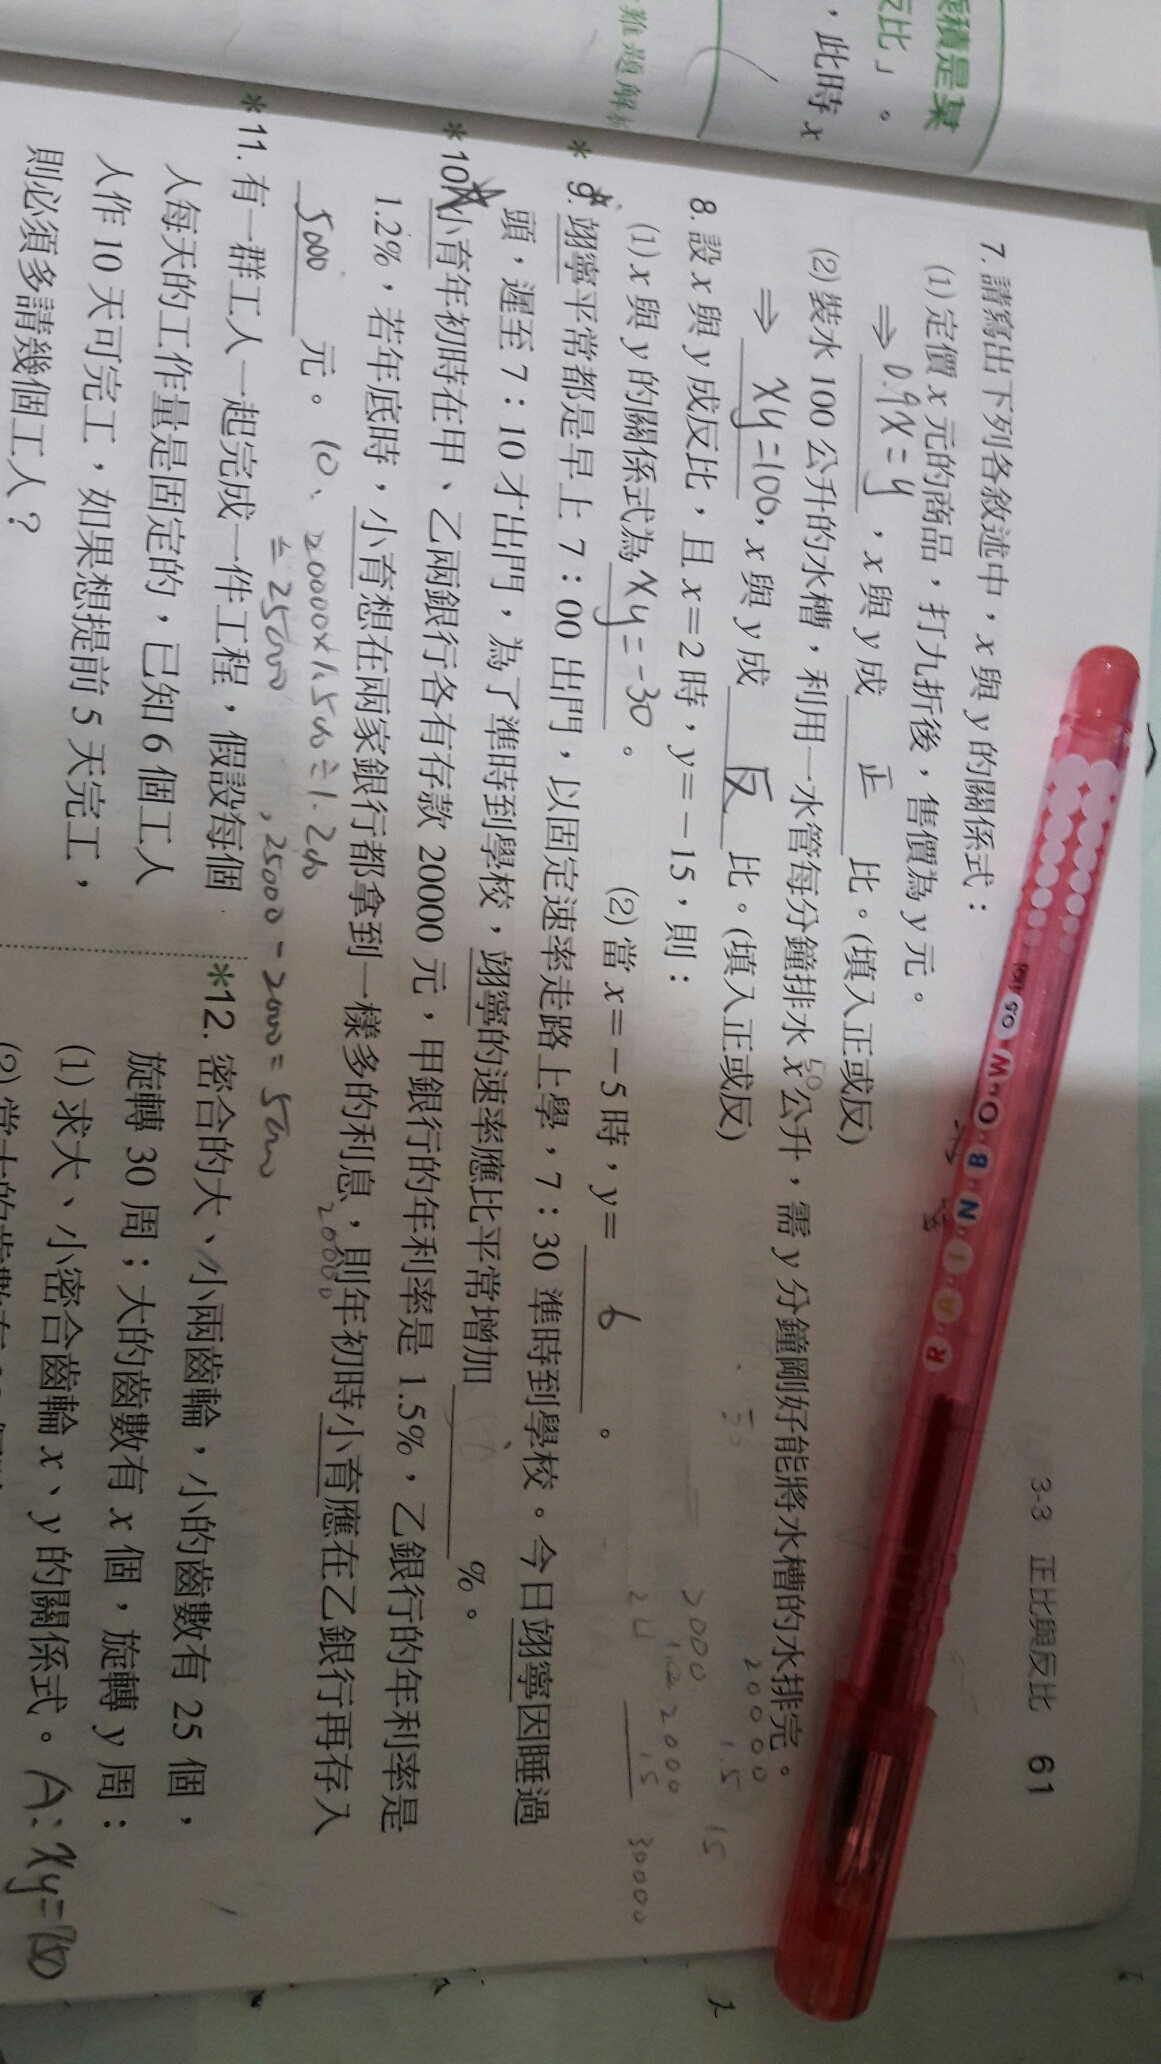 3-3 正比與反比 61
7. 請寫出下列各敘述中，x 與 y 的關係式：
(1) 定價 x 元的商品，打九折後，售價為 y 元。
⇒ 0.9x=y ，x 與 y 成 正 比。(填入正或反)
(2) 裝水 100 公升的水槽，利用一水管每分鐘排水 x 公升，需 y 分鐘剛好能將水槽的水排完。
⇒ xy=100，x 與 y 成 反 比。(填入正或反)
8. 設 x 與 y 成反比，且 x=2 時，y=-15，則：
(1) x 與 y 的關係式為 xy=-30 。 (2) 當 x=-5 時，y= 6 。
*9. 翊寧平常都是早上 7：00 出門，以固定速率走路上學，7：30 準時到學校。今日翊寧因睡過
頭，遲至 7：10 才出門，為了準時到學校，翊寧的速率應比平常增加 %。
*10. 小育年初時在甲、乙兩銀行各有存款 20000 元，甲銀行的年利率是 1.5%，乙銀行的年利率是
1.2%，若年底時，小育想在兩家銀行都拿到一樣多的利息，則年初時小育應在乙銀行再存入
5000 元。
10、20000×1.5%÷1.2%
=25000，25000-20000=5000
*11. 有一群工人一起完成一件工程，假設每個
人每天的工作量是固定的，已知 6 個工人
人作 10 天可完工，如果想提前 5 天完工，
則必須多請幾個工人？
*12. 密合的大、小兩齒輪，小的齒數有 25 個，
旋轉 30 周；大的齒數有 x 個，旋轉 y 周：
(1) 求大、小密合齒輪 x、y 的關係式。 A: xy=750
20000
1.5
15
2000
30000
積是某
反比」。
，此時 x
難題解析
MONBINI